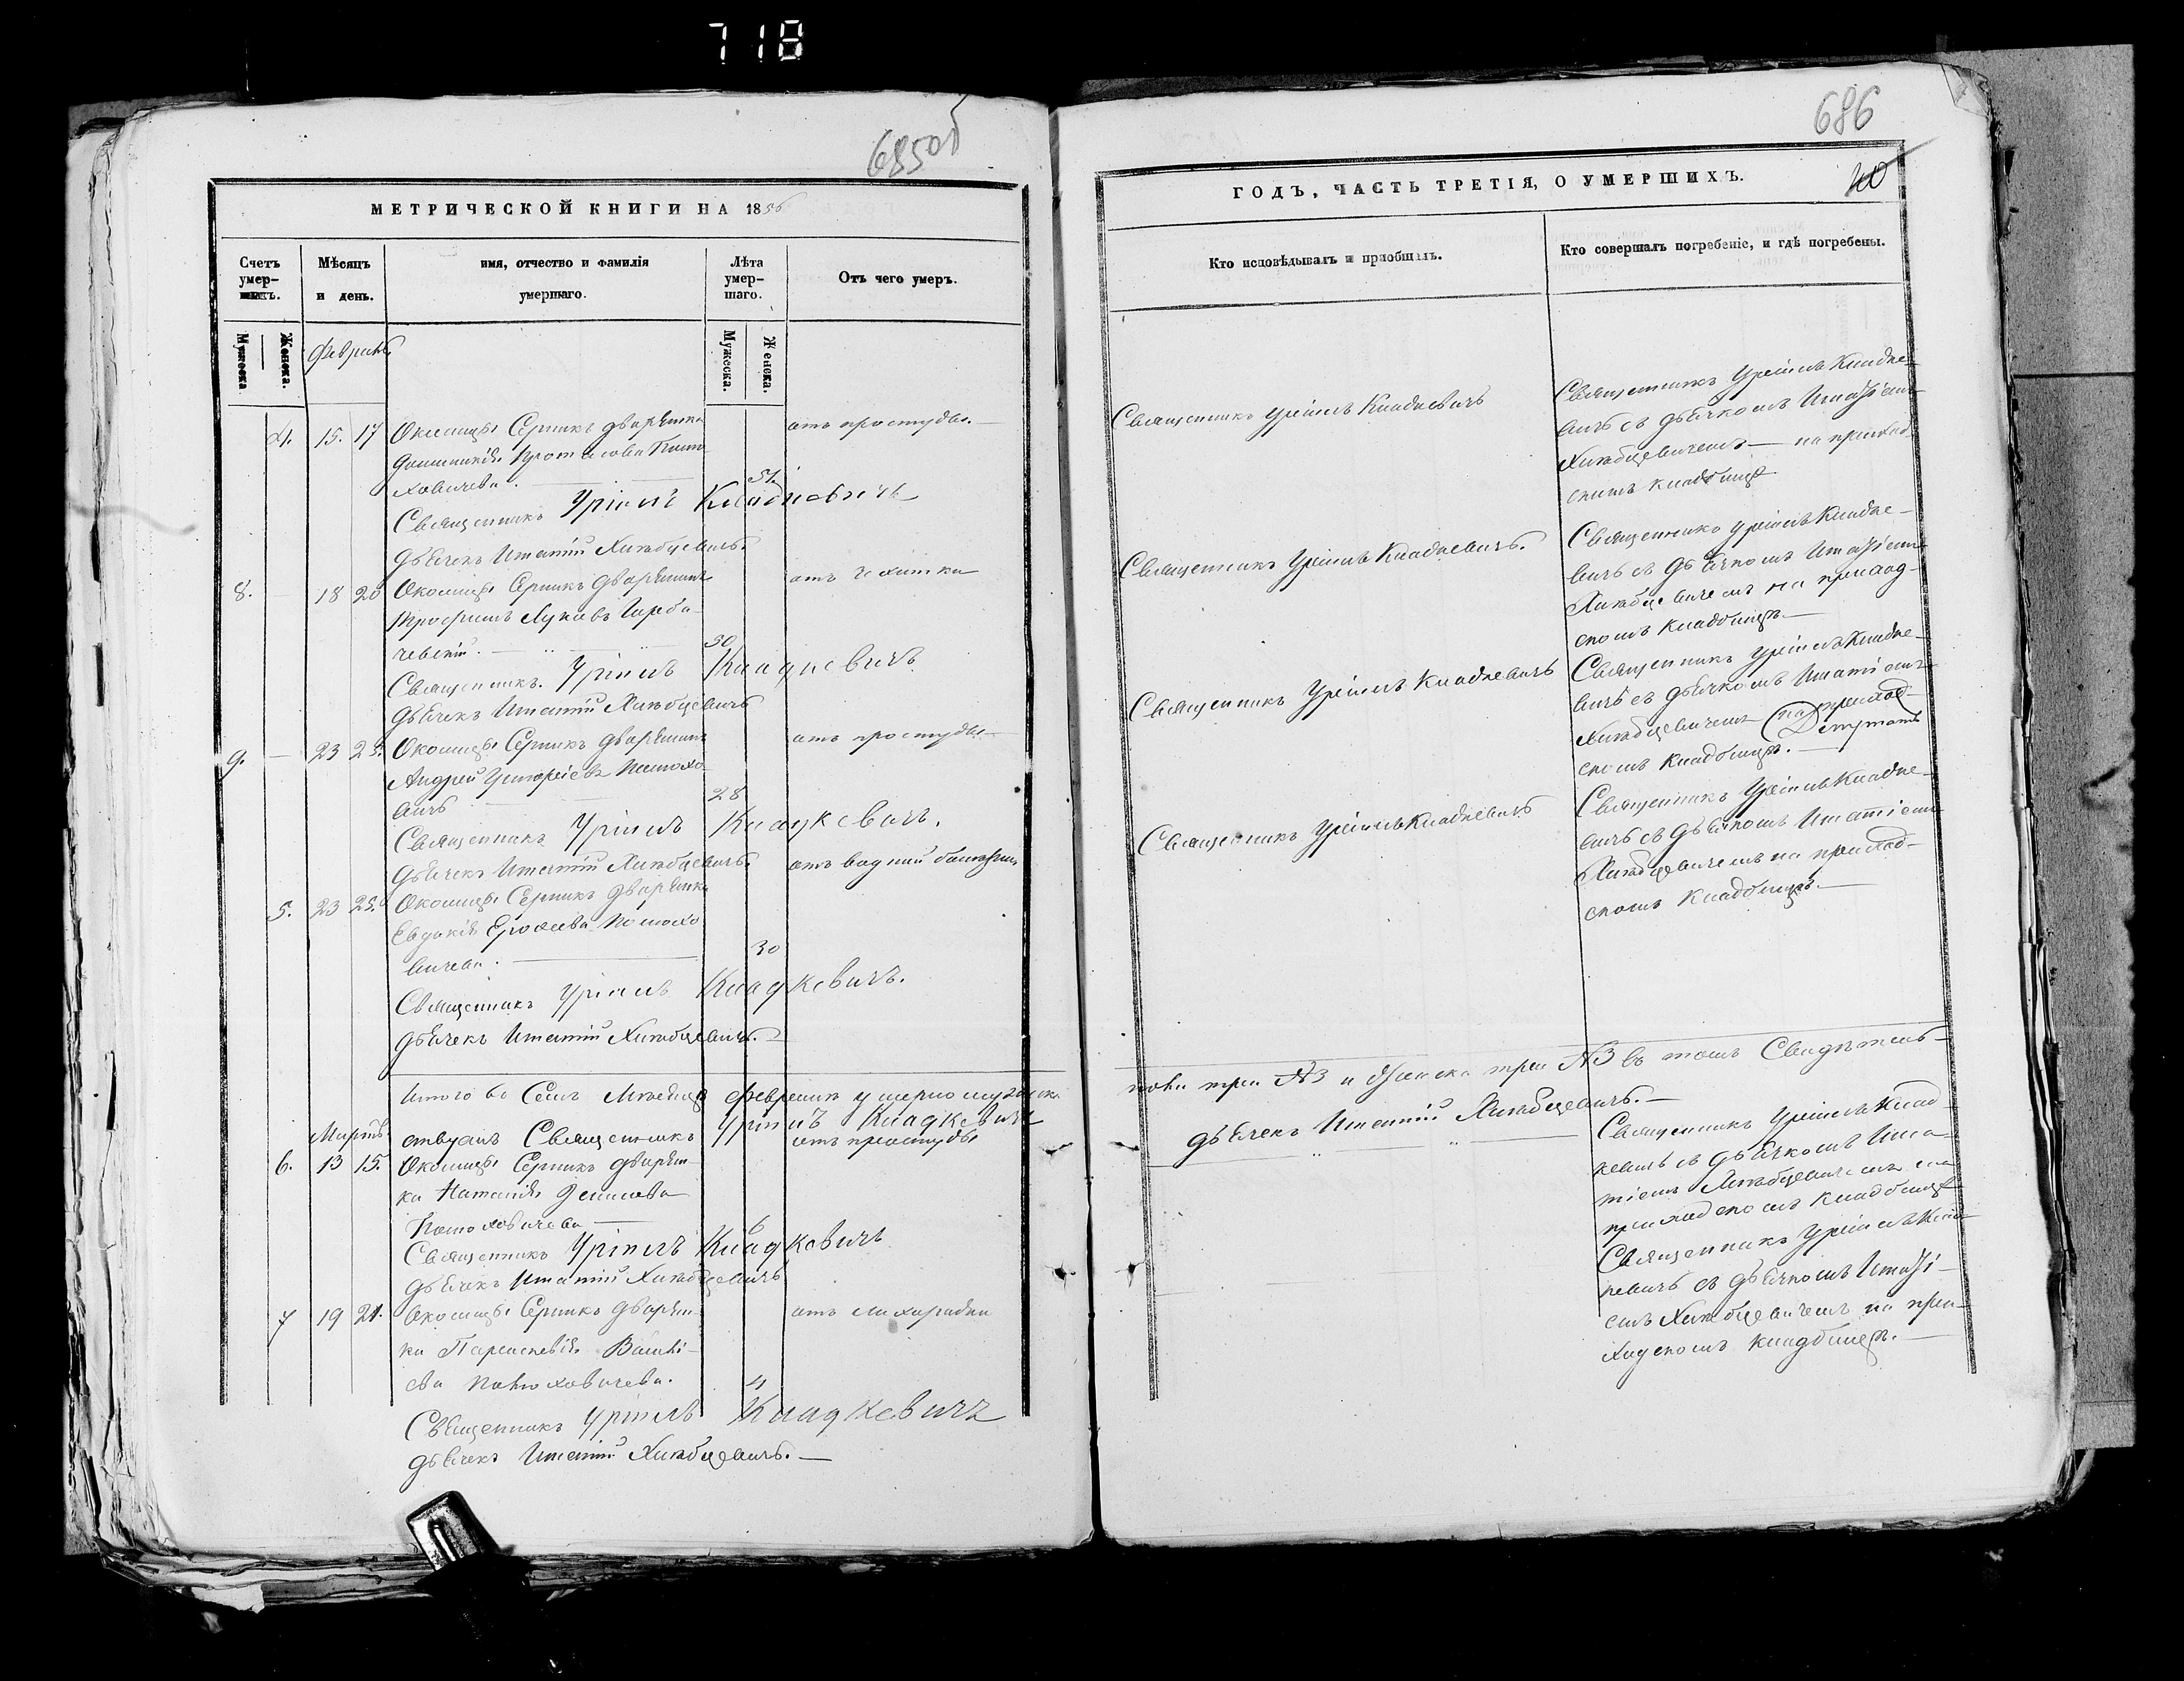 718
685об
МЕТРИЧЕСКОЙ КНИГИ НА 1856
Счетъ умерших.
Мѣсяцъ и день.
имя, отчество и фамилія умершаго.
Лѣта умер-шаго.
Отъ чего умеръ.
Мужеска
Женска.
Мужеска.
Женска.
Февраль
4. 15. 17 Околицы Серникъ дворянка отъ простуды.
Протасова
ховичева. 51.
Священникъ Уріилъ Кладкевичъ
дьячекъ Игнатій Хлѣбцевичъ.
8. — 18 20 Околицы Серникъ дворянинъ отъ чахотки
Трофимъ Лукинъ Горба-
чевскій. 50
Священникъ Уріилъ Кладкевичъ
дьячекъ Игнатій Хлѣбцевичъ
9. — 23 25. Околицы Серникъ дворянинъ отъ простуды
Андрей Григоріевъ Полхо-
вичъ 28
Священникъ Уріилъ Кладкевичъ.
дьячекъ Игнатій Хлѣбцевичъ.
5. 23 25. Околицы Серникъ дворянка отъ водяной болѣзни
Евдокія
вичева. 30
Священникъ Уріилъ Кладкевичъ.
дьячекъ Игнатій Хлѣбцевичъ.
Итого въ Семъ Мѣсяцѣ Февралѣ умерло мужеска
Мартъ
Священникъ Уріилъ Кладкевичъ
6. 13 15. Околицы Серникъ дворян- отъ простуды
ка Наталія
6
Священникъ Уріилъ Кладкевичъ
дьячекъ Игнатій Хлѣбцевичъ
7 19 21. Околицы Серникъ дворян- отъ лихорадки
ка Параскевія
4
Священникъ Уріилъ Кладкевичъ
дьячекъ Игнатій Хлѣбцевичъ.
686
40
ГОДЪ, ЧАСТЬ ТРЕТІЯ, О УМЕРШИХЪ.
Кто исповѣдывалъ и пріобщалъ.
Кто совершалъ погребеніе, и гдѣ погребены.
Священникъ Уріилъ Кладкевичъ
Священникъ Уріилъ Кладке-
вичъ съ дьячкомъ Игнатіемъ
Хлѣбцевичемъ — на приход-
скомъ кладбищѣ
Священникъ Уріилъ Кладкевичъ.
Священникъ Уріилъ Кладке-
вичъ съ дьячкомъ Игнатіемъ
Хлѣбцевичемъ на приход-
скомъ кладбищѣ.
Священникъ Уріилъ Кладкевичъ
Священникъ Уріилъ Кладке-
вичъ съ дьячкомъ Игнатіемъ
Хлѣбцевичемъ на приход-
скомъ кладбищѣ.
Священникъ Уріилъ Кладкевичъ
Священникъ Уріилъ Кладке-
вичъ съ дьячкомъ Игнатіемъ
Хлѣбцевичемъ на приход-
скомъ кладбищѣ.
пола три №3 и Женска три №3 въ томъ Свидѣтель-
дьячекъ Игнатій Хлѣбцевичъ.
Священникъ Уріилъ Клад-
кевичъ съ дьячкомъ Игна-
тіемъ Хлѣбцевичемъ на
приходскомъ кладбищѣ
Священникъ Уріилъ Клад-
кевичъ съ дьячкомъ Игнаті-
емъ Хлѣбцевичемъ на при-
ходскомъ кладбищѣ.